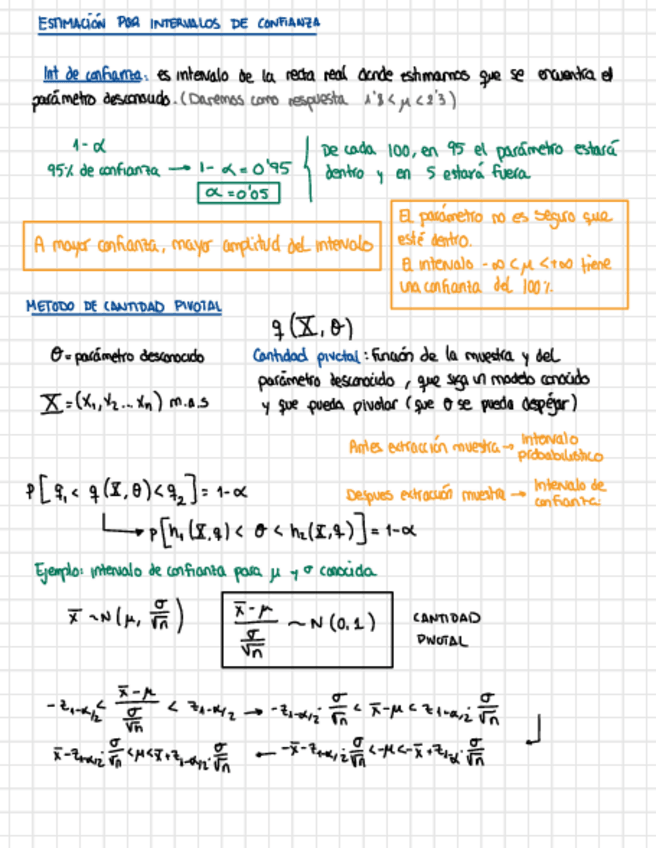 ESTIMACIÓN POR INTERVALOS DE CONFIANZA
Int de confianza: es intervalo de la recta real donde estimamos que se encuentra el
parámetro desconocido. (Daremos como respuesta 1'8 < μ < 2'3)
1-α
95% de confianza → 1-α = 0'95
α = 0'05
De cada 100, en 95 el parámetro estará
dentro y en 5 estará fuera
A mayor confianza, mayor amplitud del intervalo
El parámetro no es seguro que
esté dentro.
El intervalo -∞ < μ < +∞ tiene
una confianza del 100%.
METODO DE CANTIDAD PIVOTAL
q (X, θ)
θ = parámetro desconocido
Cantidad pivotal: función de la muestra y del
parámetro desconocido, que siga un modelo conocido
y que pueda pivotar (que θ se pueda despejar)
X = (x₁, x₂ ... xₙ) m.a.s
Antes extracción muestra → Intervalo
probabilístico
P[q₁ < q(X, θ) < q₂] = 1-α
Despues extracción muestra → Intervalo de
confianza
→ P[h₁(X,q) < θ < h₂(X,q)] = 1-α
Ejemplo: intervalo de confianza para μ y σ conocida
x̄ ~ N(μ, σ/√n)
(x̄-μ)/(σ/√n) ~ N(0,1)
CANTIDAD
PIVOTAL
-z₁₋α/₂ < (x̄-μ)/(σ/√n) < z₁₋α/₂ → -z₁₋α/₂ · σ/√n < x̄-μ < z₁₋α/₂ · σ/√n
x̄-z₁₋α/₂ · σ/√n < μ < x̄+z₁₋α/₂ · σ/√n ← -x̄-z₁₋α/₂ · σ/√n < -μ < -x̄+z₁₋α/₂ · σ/√n